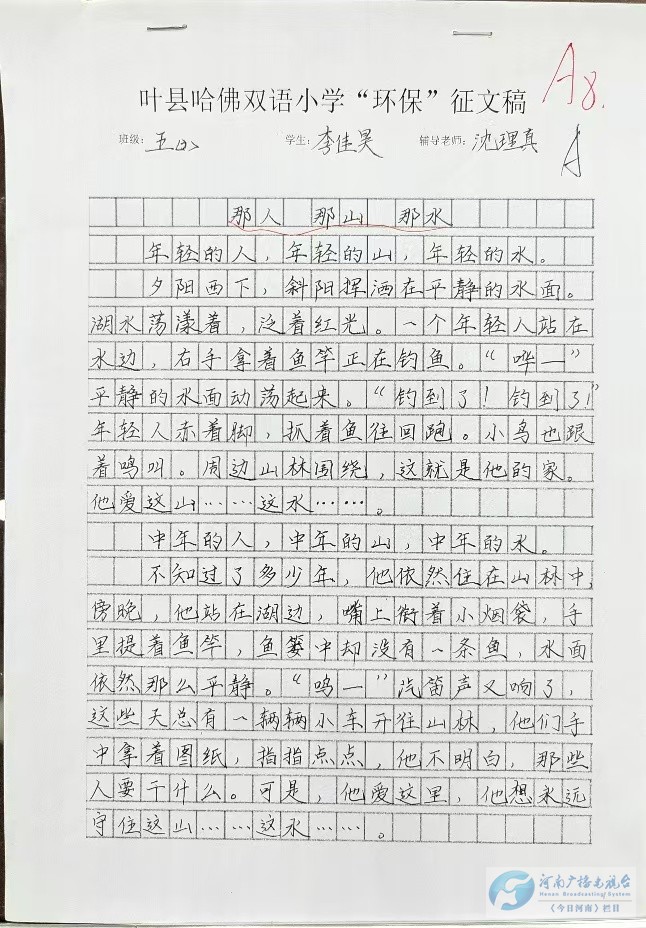 A8.
叶县哈佛双语小学“环保”征文稿
班级：五(2) 学生：李佳昊 辅导老师：沈理真
A
那人 那山 那水
年轻的人，年轻的山，年轻的水。
夕阳西下，斜阳挥洒在平静的水面。
湖水荡漾着，泛着红光。一个年轻人站在
水边，右手拿着鱼竿正在钓鱼。“哗—”
平静的水面动荡起来。“钓到了！钓到了！”
年轻人赤着脚，抓着鱼往回跑。小鸟也跟
着鸣叫。周边山林围绕，这就是他的家。
他爱这山……这水……。
中年的人，中年的山，中年的水。
不知过了多少年，他依然住在山林中，
傍晚，他站在湖边，嘴上衔着小烟袋，手
里提着鱼竿，鱼篓中却没有一条鱼，水面
依然那么平静。“鸣—”汽笛声又响了，
这些天总有一辆辆小车开往山林，他们手
中拿着图纸，指指点点，他不明白，那些
人要干什么。可是，他爱这里，他想永远
守住这山……这水……。
河南广播电视台
Henan Broadcasting System
《今日河南》栏目